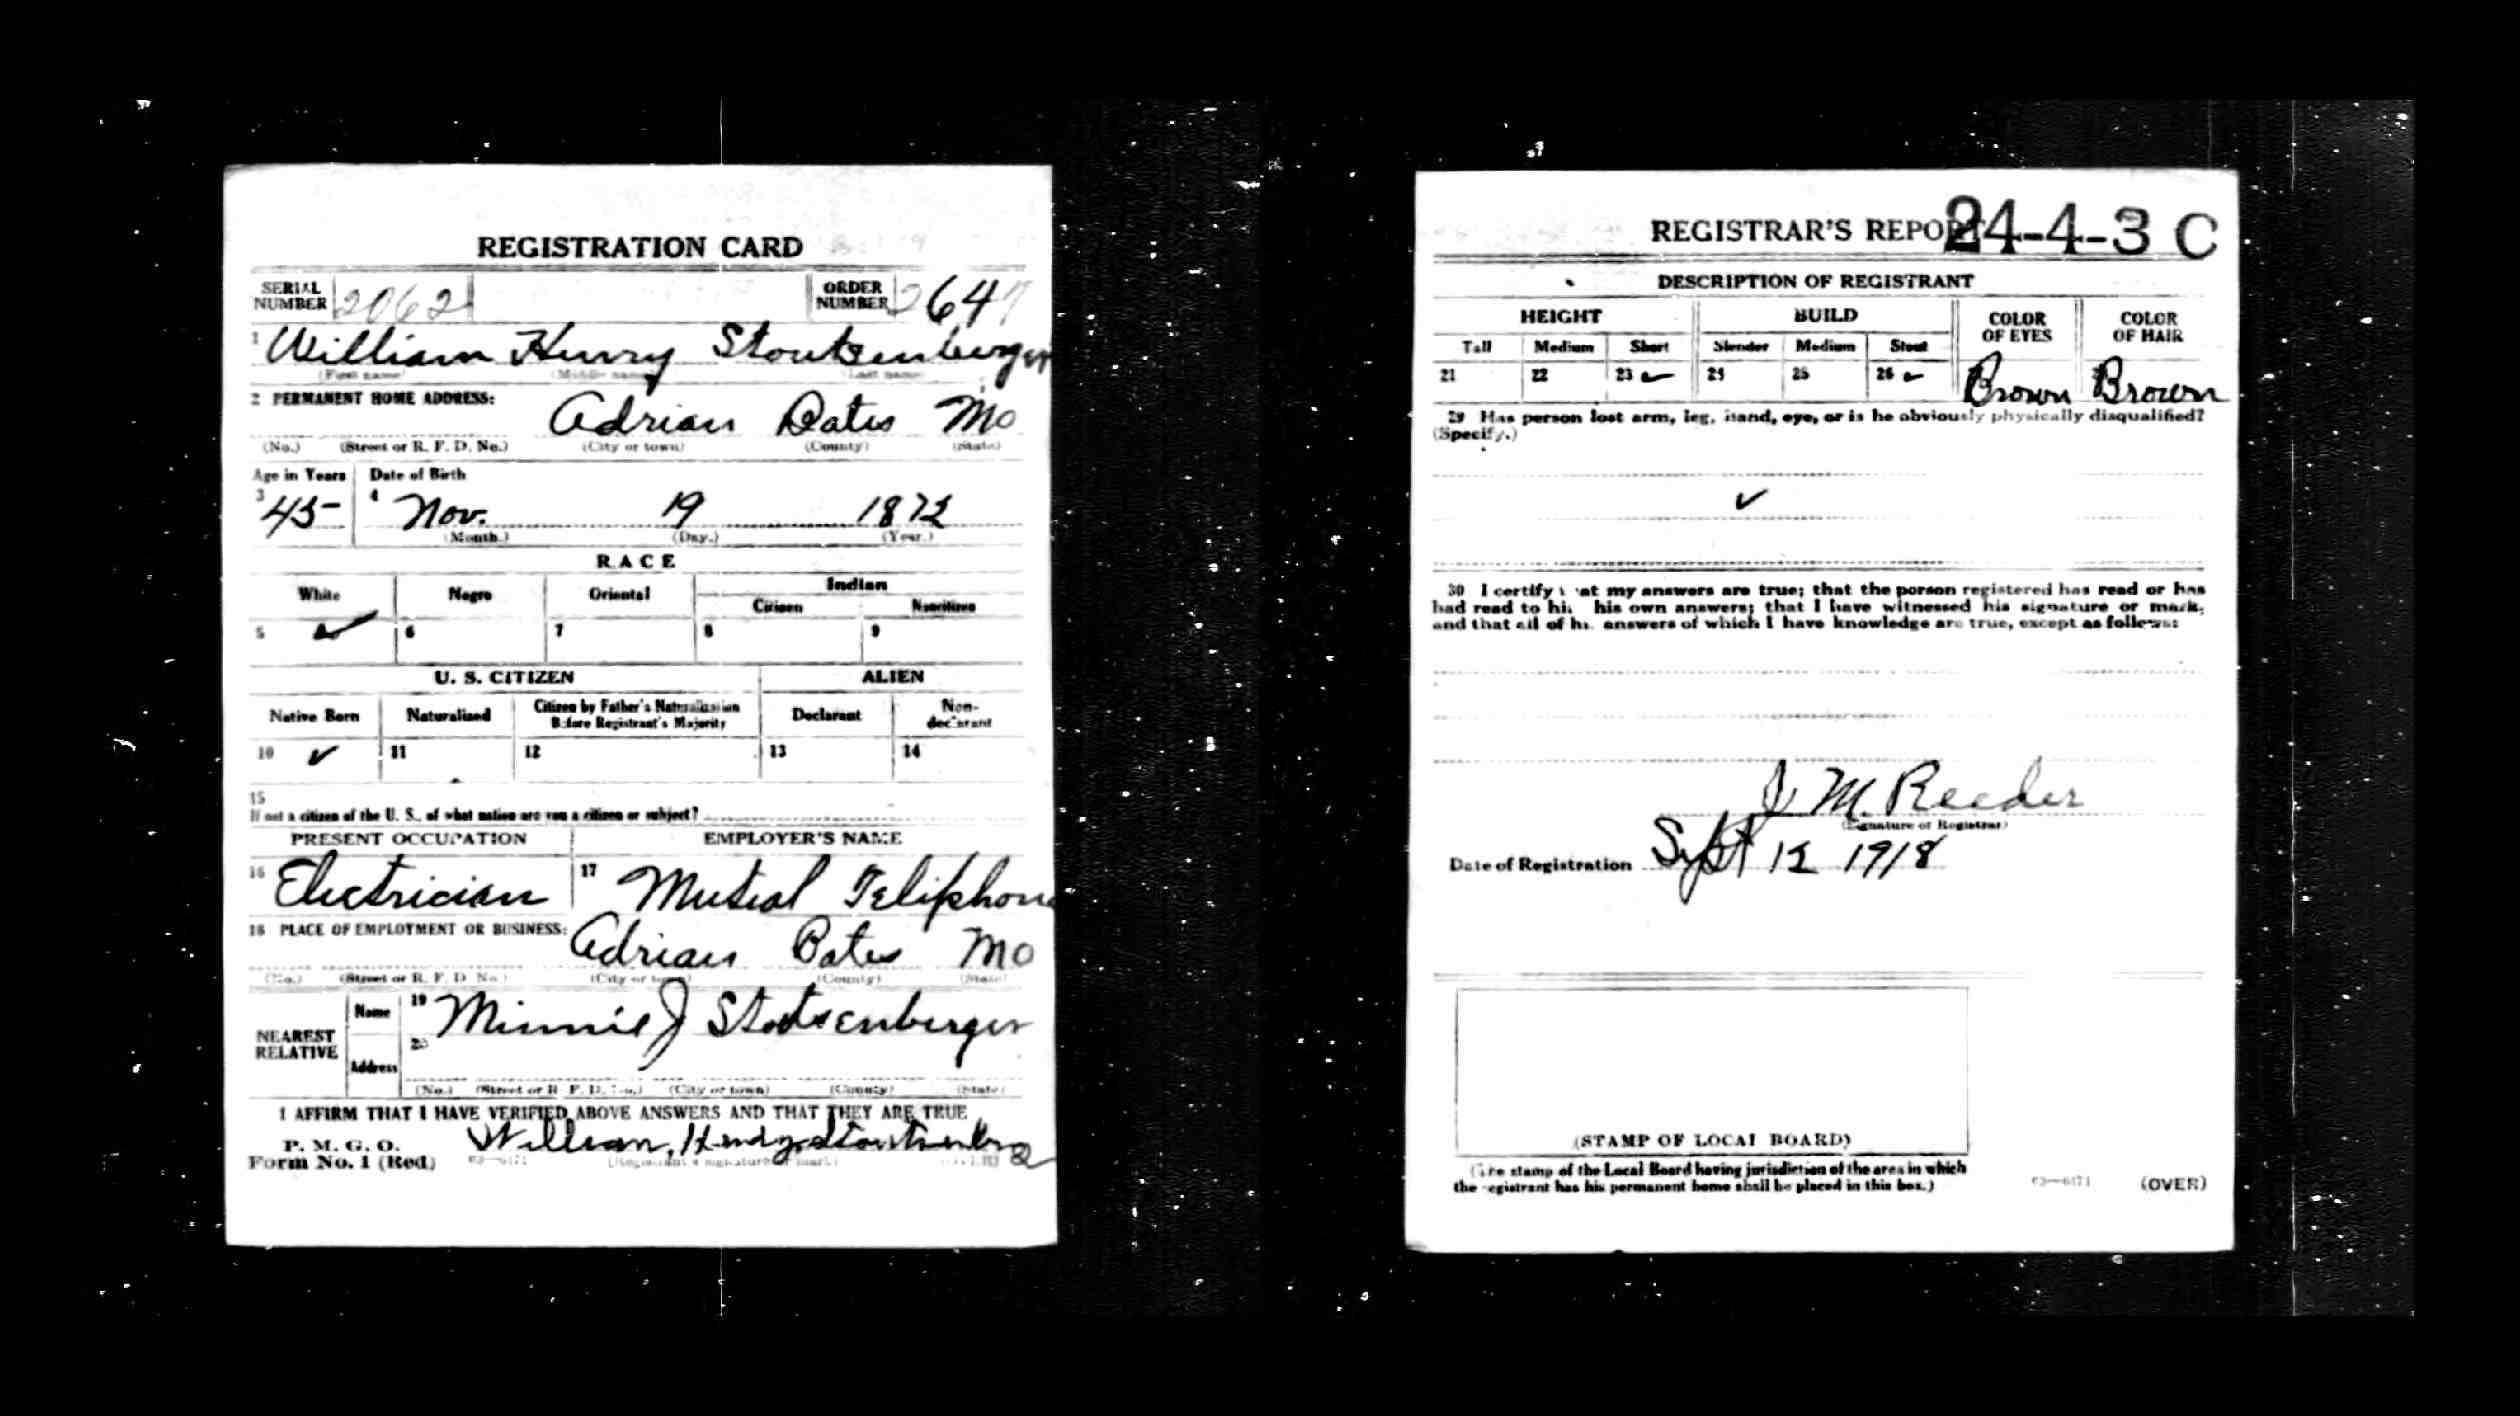 REGISTRATION CARD
SERIAL NUMBER 2062 ORDER NUMBER 2647
1 William Henry Stoutzenberger
(First name) (Middle name) (Last name)
2 PERMANENT HOME ADDRESS: Adrian Bates Mo
(No.) (Street or R. F. D. No.) (City or town) (County) (State)
Age in Years Date of Birth
3 45 4 Nov. 19 1872
(Month.) (Day.) (Year.)
RACE
White Negro Oriental Indian
Citizen Noncitizen
5 ✓ 6 7 8 9
U. S. CITIZEN ALIEN
Native Born Naturalized Citizen by Father's Naturalization Before Registrant's Majority Declarant Non-declarant
10 ✓ 11 12 13 14
15
If not a citizen of the U. S., of what nation are you a citizen or subject?
PRESENT OCCUPATION EMPLOYER'S NAME
16 Electrician 17 Mutual Teliphone
18 PLACE OF EMPLOYMENT OR BUSINESS: Adrian Bates Mo
(No.) (Street or R. F. D. No.) (City or town) (County) (State)
NEAREST RELATIVE Name 19 Minnie J Stoutsenberger
Address 20
(No.) (Street or R. F. D. No.) (City or town) (County) (State)
I AFFIRM THAT I HAVE VERIFIED ABOVE ANSWERS AND THAT THEY ARE TRUE
P. M. G. O.
Form No. 1 (Red) 03—6171 William Henry
(Registrant's signature or mark) (OVER)
REGISTRAR'S REPORT 24-4-3 C
DESCRIPTION OF REGISTRANT
HEIGHT BUILD COLOR OF EYES COLOR OF HAIR
Tall Medium Short Slender Medium Stout
21 22 23 ✓ 24 25 26 ✓ Brown Brown
29 Has person lost arm, leg, hand, eye, or is he obviously physically disqualified?
(Specify.)
✓
30 I certify that my answers are true; that the person registered has read or has
had read to him his own answers; that I have witnessed his signature or mark,
and that all of his answers of which I have knowledge are true, except as follows:
J. M. Reeder
(Signature of Registrar)
Date of Registration Sept 12 1918
(STAMP OF LOCAL BOARD)
(The stamp of the Local Board having jurisdiction of the area in which
the registrant has his permanent home shall be placed in this box.) 03—6171 (OVER)